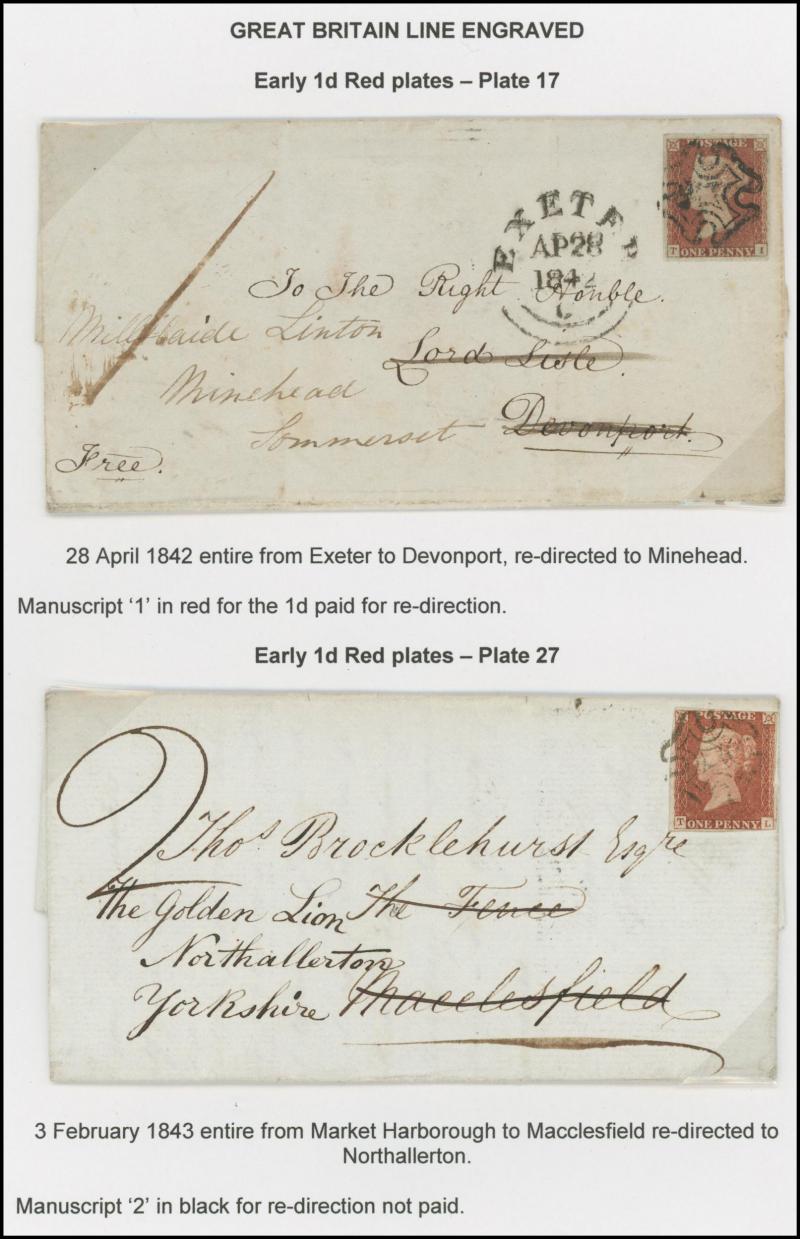 GREAT BRITAIN LINE ENGRAVED
Early 1d Red plates – Plate 17
POSTAGE
T I
ONE PENNY
EXETER
AP 28
1842
C
To The Right Honble.
Lord Lisle.
Devonport.
Linton
Minehead
Sommerset
Free.
28 April 1842 entire from Exeter to Devonport, re-directed to Minehead.
Manuscript ‘1’ in red for the 1d paid for re-direction.
Early 1d Red plates – Plate 27
POSTAGE
T ONE PENNY L
2
Thos Brocklehurst Esqre
The Golden Lion The Fence
Northallerton
Yorkshire Macclesfield
3 February 1843 entire from Market Harborough to Macclesfield re-directed to
Northallerton.
Manuscript ‘2’ in black for re-direction not paid.